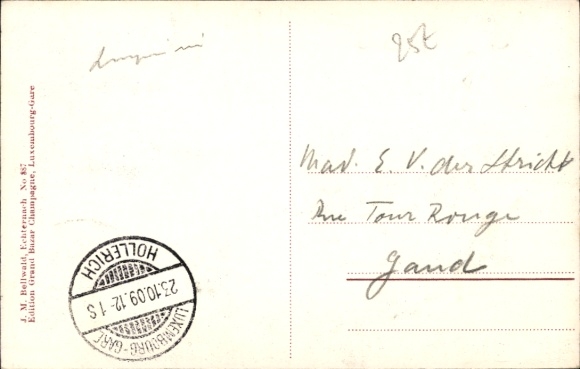 J. M. Bellwald, Echternach No 887
Edition Grand Bazar Champagne, Luxembourg-Gare
Mad. E. V. der Stricht
Rue Tour Rouge
Gand
HOLLERICH
23.10.09.12-1S
LUXEMBOURG-GARE